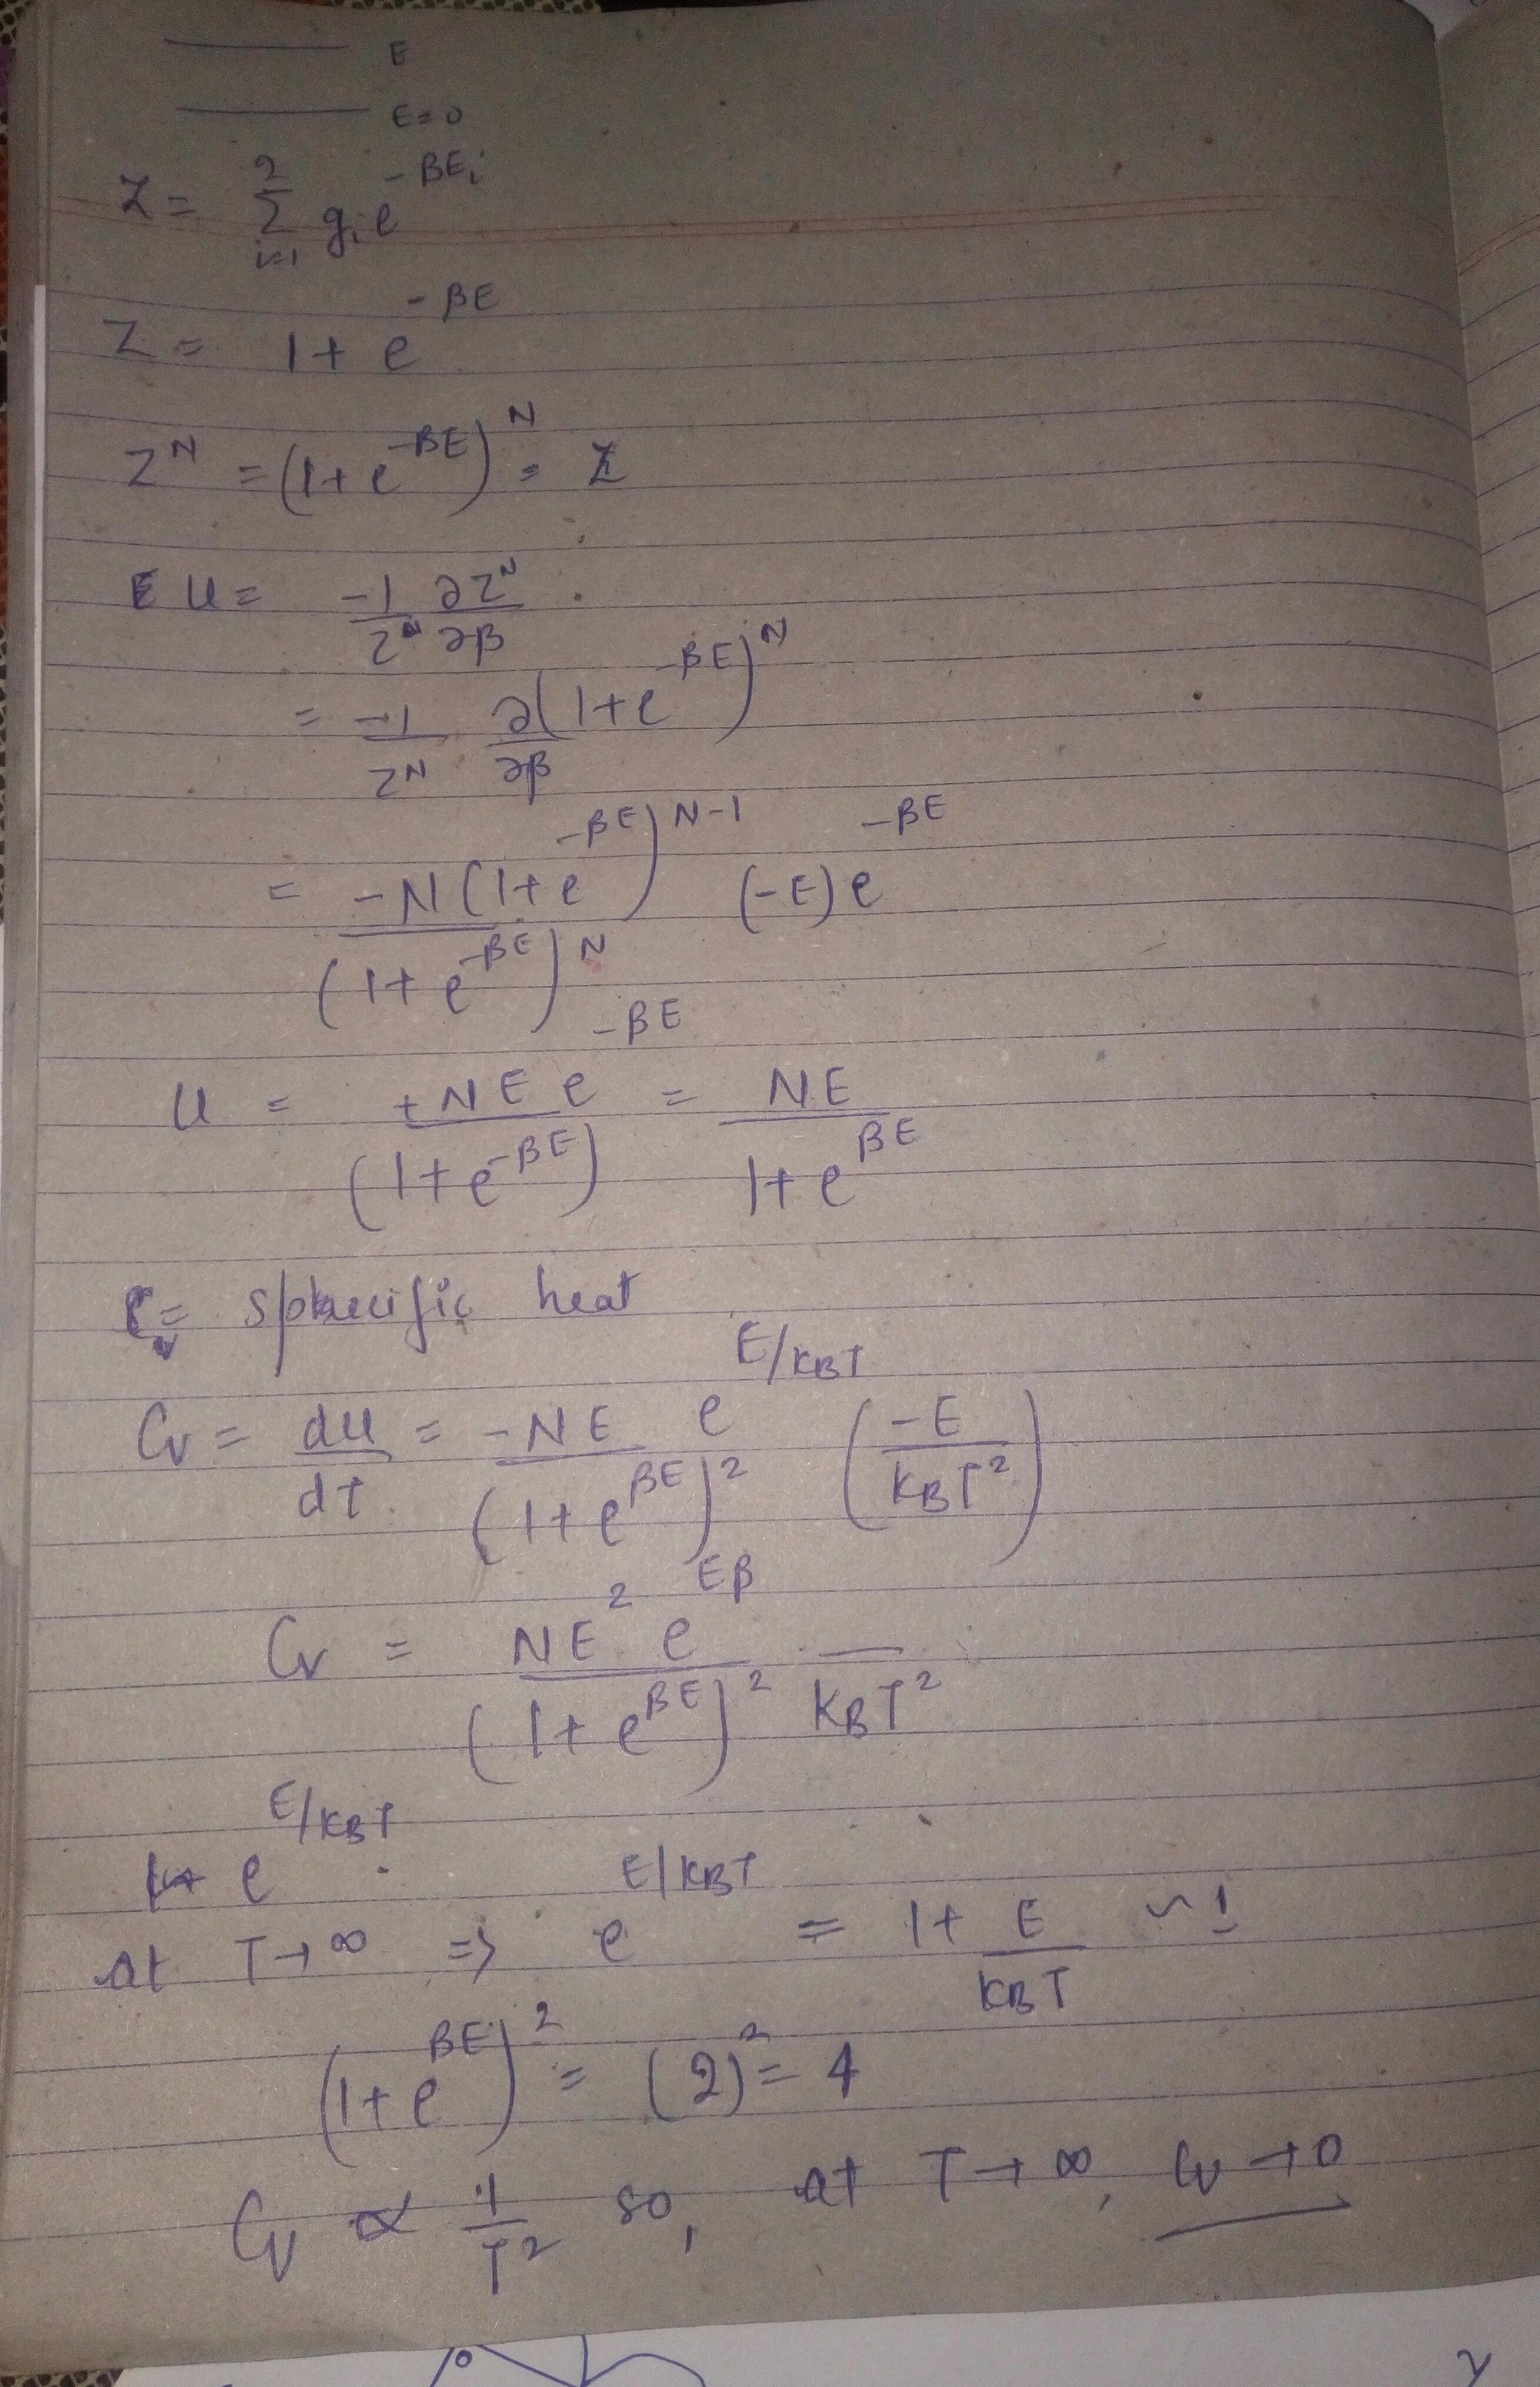 E
E=0
Z = Σ_{i=1}^{2} g_i e^{-βE_i}
Z = 1 + e^{-βE}
Z^N = (1+e^{-βE})^N = Z
U = -1/Z^N ∂Z^N/∂β
= -1/Z^N ∂(1+e^{-βE})^N/∂β
= -N(1+e^{-βE})^{N-1}/(1+e^{-βE})^N (-E)e^{-βE}
U = +NE e^{-βE}/(1+e^{-βE}) = NE/1+e^{βE}
C_v = heat
C_v = dU/dT = -NE e^{E/K_BT}/(1+e^{βE})^2 (-E/K_BT^2)
C_v = NE^2 e^{Eβ}/(1+e^{βE})^2 —/K_BT^2
e^{E/K_BT}
at T→∞ ⇒ e^{E/K_BT} = 1+ E/K_BT ~ 1
(1+e^{βE})^2 = (2)^2 = 4
C_v ∝ 1/T^2 so, at T→∞, C_v→0